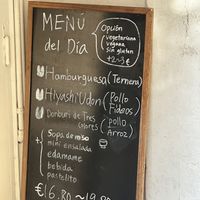 MENÚ
del Día
Opción
vegetariana
vegana
sin gluten
+2~3€
Hamburguesa (Ternera)
Hiyashi Udon (Pollo
Fideos)
Donburi de Tres
colores (pollo
Arroz)
+ Sopa de miso
mini ensalada
edamame
bebida
pastelito
€16.80